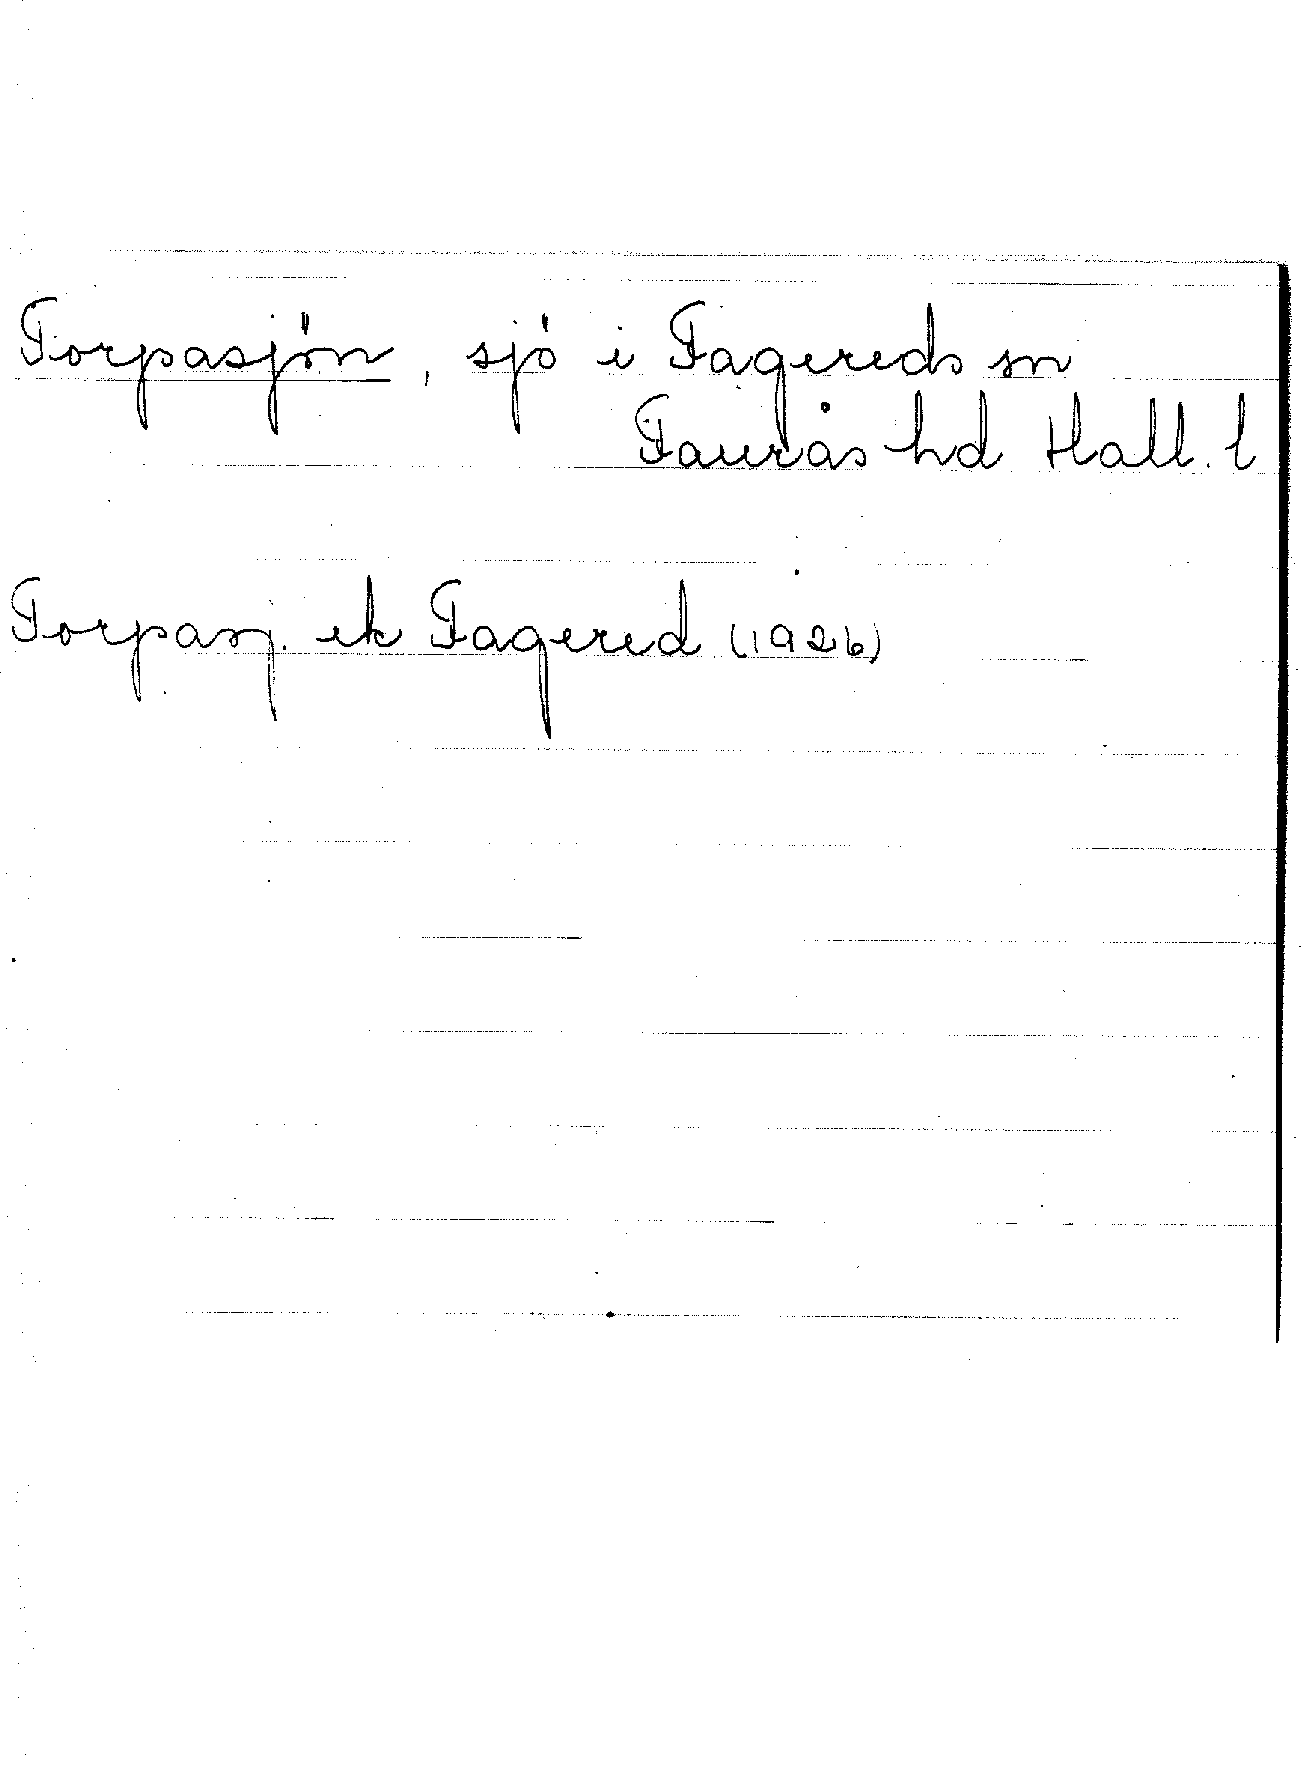 Torpasjön, sjö i Fagereds sn
Faurås hd Hall. l
Torpasj. ek Fagered (1926)